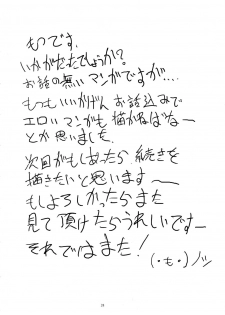 もつです。
いかがだったでしょうか?
お話の無いマンガですが…。
もっといいかげんお話込みで
エロいマンガも描かねばなー
とか思いました。
次回がもしあったら続きを
描きたいと思います〜
もしよろしかったらまた
見て頂けたらうれしいですー
それではまた!
(・も・)ノシ